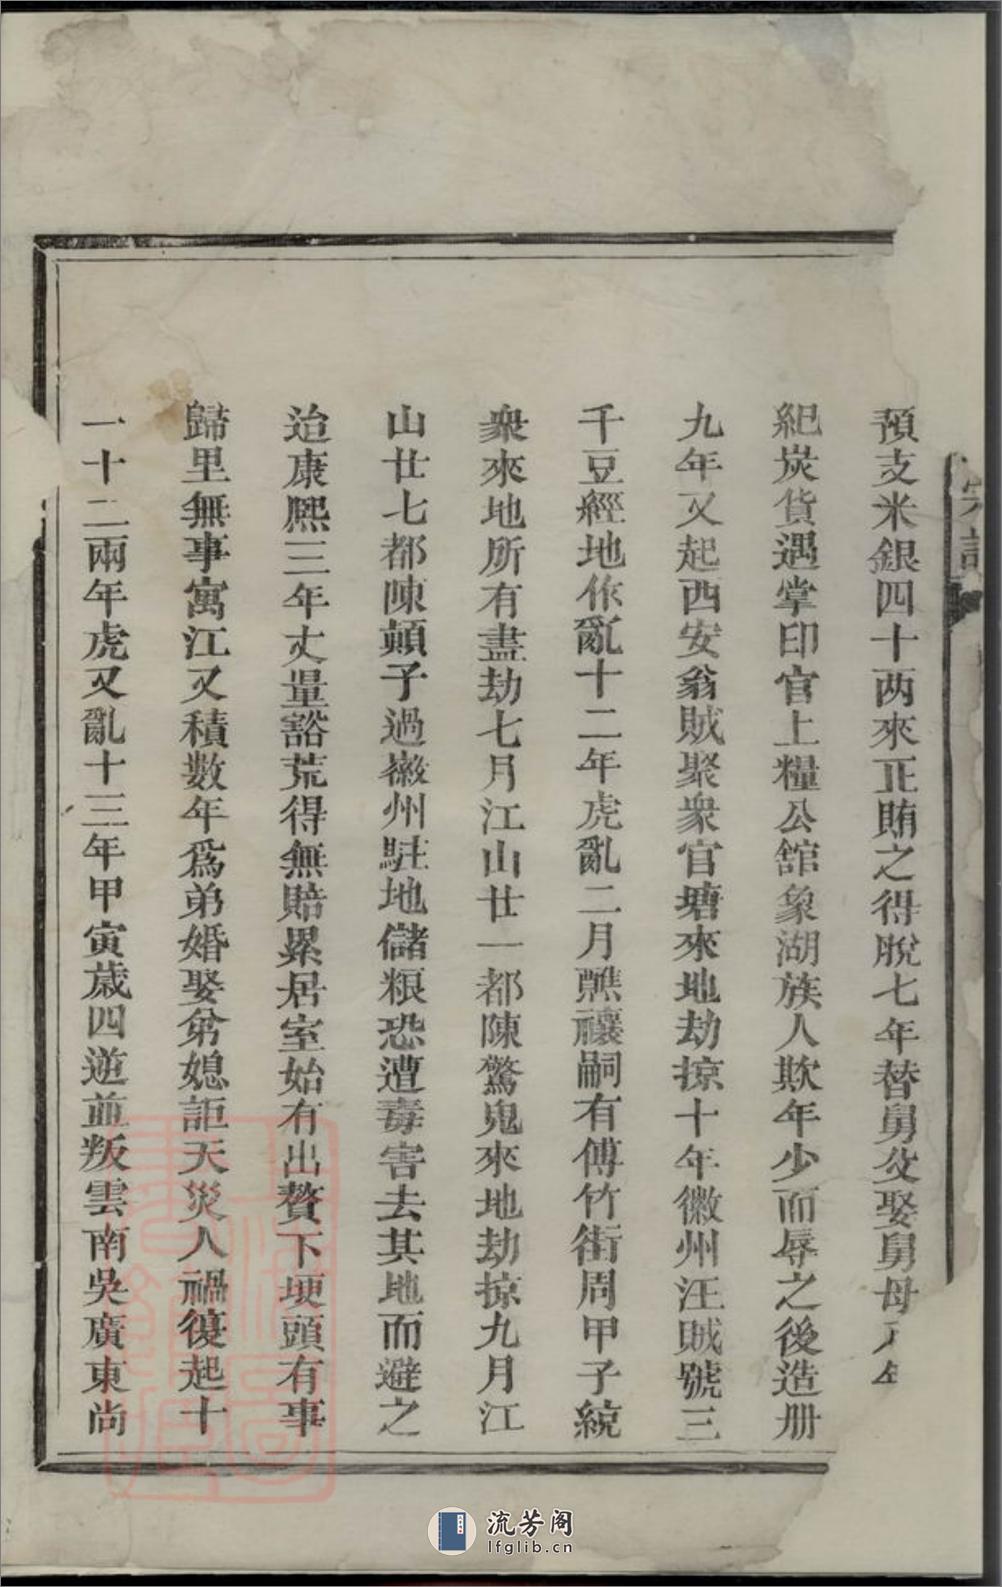 預支米銀四十两來正賄之得脫七年替舅父娶舅母八年
紀炭貨遇掌印官上糧公舘象湖族人欺年少而辱之後造册
九年又起西安翁賊聚衆官塘來地劫掠十年徽州汪賊號三
千豆經地作亂十二年虎亂二月醮禳嗣有傅竹街周甲子統
衆來地所有盡劫七月江山廿一都陳驚鬼來地劫掠九月江
山廿七都陳顛子過徽州駐地儲粮恐遭毒害去其地而避之
治康熙三年丈量豁荒得無賠累居室始有出贅下埂頭有事
歸里無事寓江又積數年爲弟婚娶弟媳詎天災人禍復起十
一十二兩年虎又亂十三年甲寅歲四逆並叛雲南吳廣東尚
宗譜
流芳阁
lfglib.cn